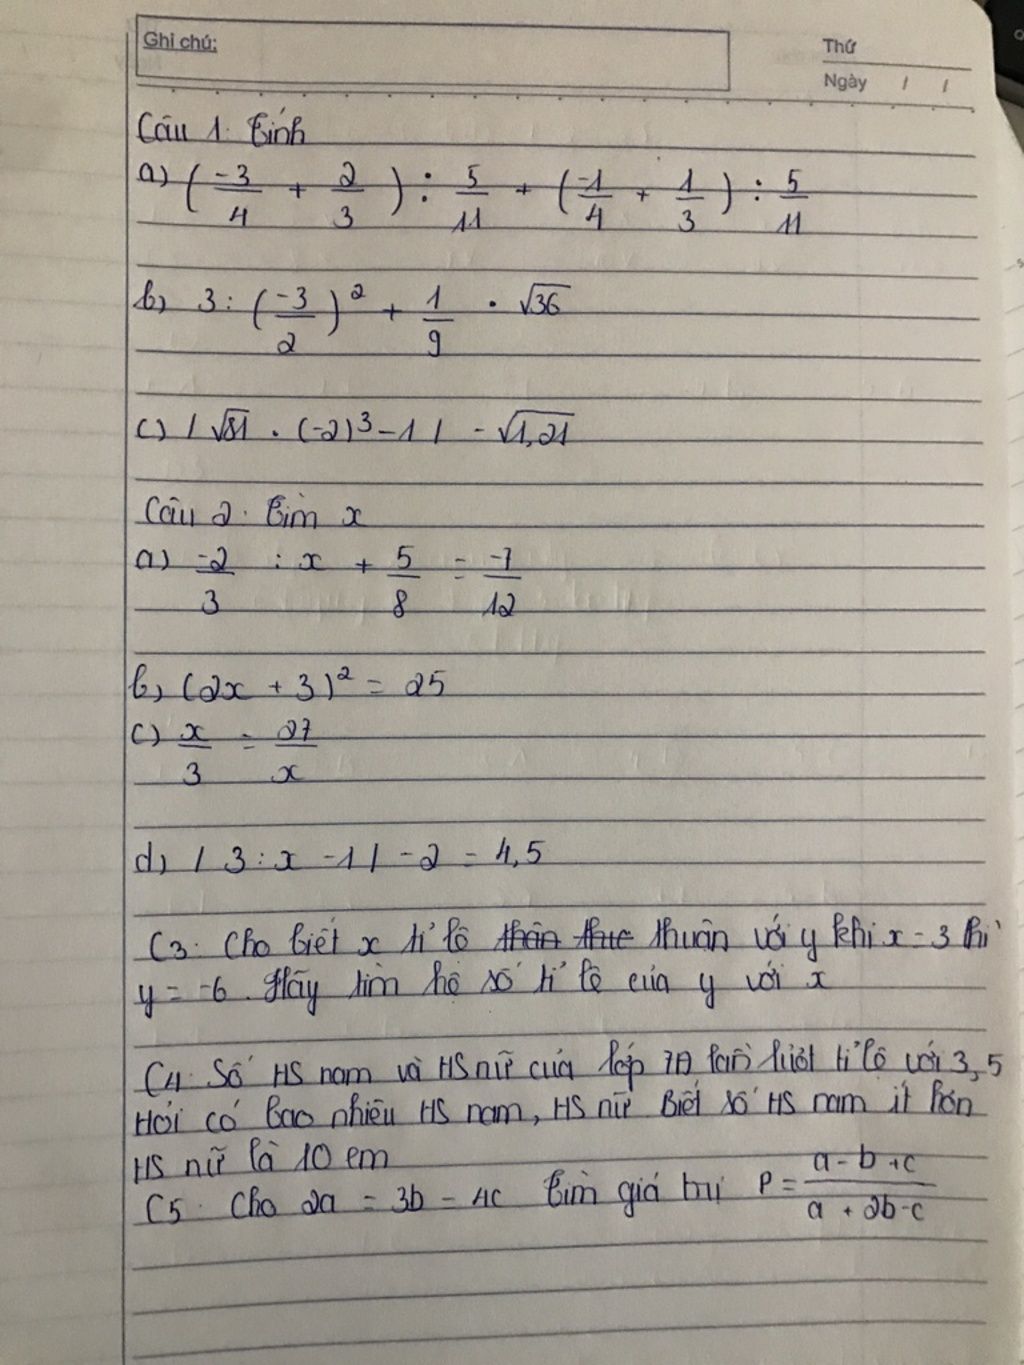 Ghi chú:
Thứ
Ngày / /
Câu 1. Tính
a) (-3/4 + 2/3) : 5/11 + (-1/4 + 1/3) : 5/11
b) 3 : (-3/2)² + 1/9 . √36
c) |√81 . (-2)³ - 1| - √1,21
Câu 2. Tìm x
a) -2/3 : x + 5/8 = -7/12
b) (2x + 3)² = 25
c) x/3 = 27/x
d) |3 : x - 1| - 2 = 4,5
C3. Cho biết x tỉ lệ thuận với y khi x = 3 thì
y = -6. Hãy tìm hệ số tỉ lệ của y với x
C4. Số HS nam và HS nữ của lớp 7A lần lượt tỉ lệ với 3, 5
Hỏi có bao nhiêu HS nam, HS nữ Biết số HS nam ít hơn
HS nữ là 10 em
C5. Cho 2a = 3b = 4c Tìm giá trị P = (a - b + c)/(a + 2b - c)